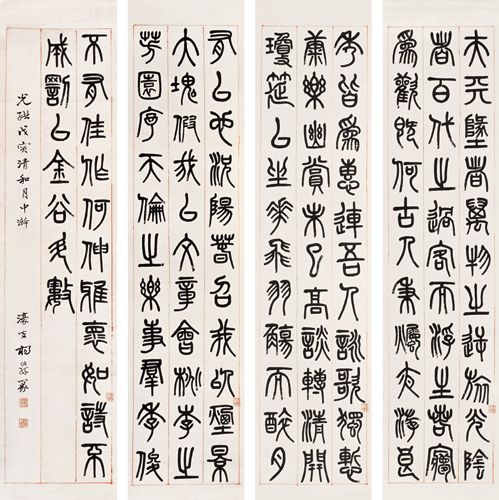 夫天墬者萬物之逆旅光陰
者百代之過客而浮生若夢
為歡幾何古人秉燭夜游良
秀皆為惠連吾人詠歌獨慙
康樂幽賞未已高談轉清開
瓊筵以坐華飛羽觴而醉月
有以也況陽春召我以煙景
大塊假我以文章會桃李之
芳園序天倫之樂事羣季俊
不有佳作何伸雅懷如詩不
成罰以金谷酒數
光緒戊寅清和月中澣
濠叟楊沂孫篆